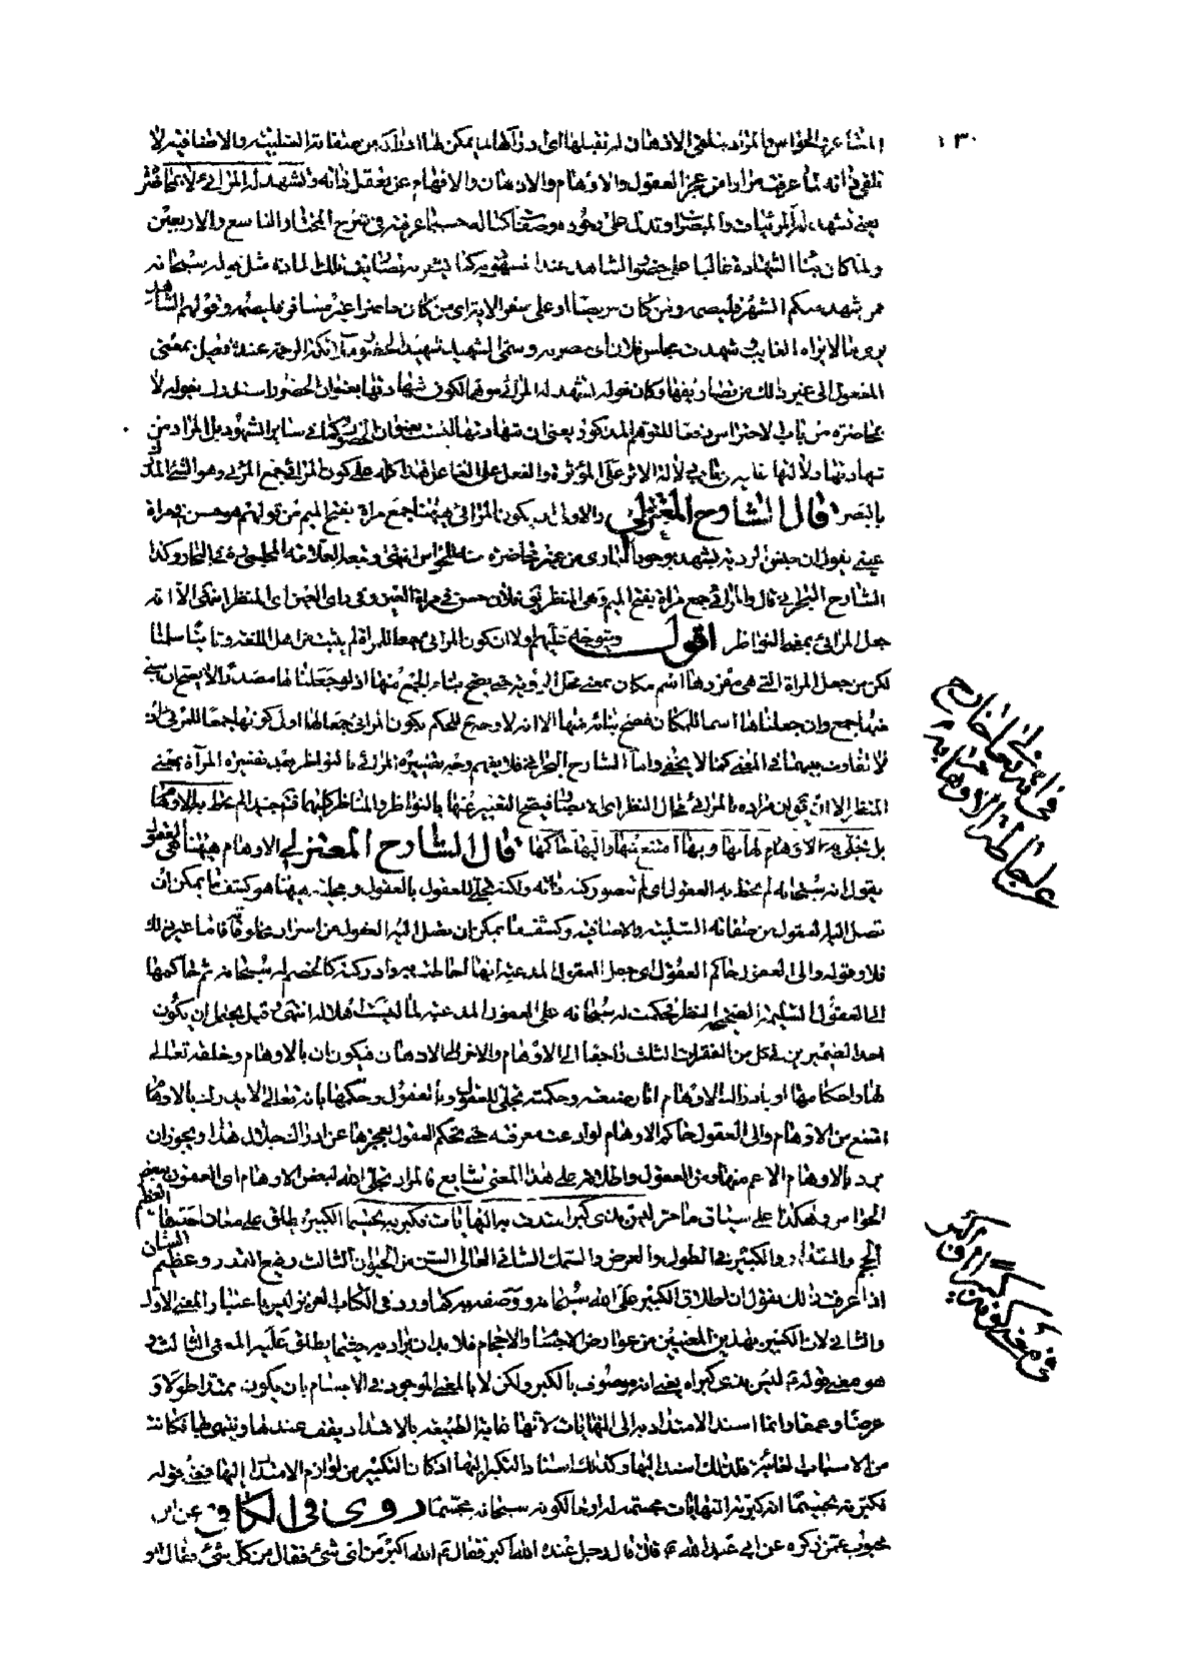 ١٣٠
المشاعر الحواس والمراد بتلقي الاذهان له تقبلها اي دركها لما يمكن لها ادراكه من صفاته السلبية والاضافية لا
تلقي ذاته لما عرفت مرارا من عجز العقول والاوهام والاذهان والافهام عن تعقل ذاته وتشهد له المرائي لا بمحاضرة
يعني تشهد له المرئيات والمبصرات وتدل على وجوده وصفات كماله حسبما عرفته في شرح المختار التاسع والاربعين
ولما كان بناء الشهادة غالبا على حضور الشاهد عند المشهود به كما يشعر به تصاريف تلك المادة مثل قوله سبحانه
فمن شهد منكم الشهر فليصمه ومن كان مريضا او على سفر الاية اي من كان حاضرا غير مسافر فليصمه وقولهم الشاهد
يرى ما لا يراه الغايب وشهدت مجلس فلان اي حضرته وسمي الشهيد شهيدا لحضور ملائكة الرحمة عنده فعيل بمعنى
المفعول الى غير ذلك من تصاريفها وكان قوله لتشهد له المرائي موهما لكون شهادتها بعنوان الحضور استدرك بقوله لا
بمحاضرة من باب الاحتراس دفعا للتوهم المذكور يعني ان شهادتها ليست بعنوان الحضور كما في ساير الشهود بل المراد من
شهادتها دلالتها عليه دلالة الاثر على المؤثر والفعل على الفاعل هذا كله على كون المرائي جمع المرئي وهو الشيء المدرك
بالبصر قال الشارح المعتزلي والاولى ان يكون المرائي ههنا جمع مرآة بفتح الميم من قولهم هو حسن في مرآة
عيني يقول ان جنس الرؤية يشهد بوجود الباري من غير محاضرة منه للحواس انتهى وتبعه العلامة المجلسي ره في البحار وكذا
الشارح البحراني قال والمرائي جمع مرآة بفتح الميم وهي المنظر يقال فلان حسن في مرآة العين وفي رأي العين اي المنظر انتهى الا انه
جعل المرائي بمعنى النواظر اقول ويتوجه عليهم اولا ان كون المرائي جمعا للمرآة لم يثبت من اهل اللغة وثانيا سلمنا
لكن من جعل المرآة التي هي مفردها اسم مكان بمعنى محل الرؤية حتى يصح بناء الجمع منها اذ لو جعلناها مصدرا لا يصح ان يبنى
منها جمع وان جعلناها اسما للمكان فصح بنائه منها الا انه لا وجه للحكم بكون المرائي جمعا لها اولى من كونها جمعا للمرئي اذ
لا تفاوت بينهما في المعنى كما لا يخفى واما الشارح البحراني فلا يفهم وجه تفسيره المرائي بالنواظر بعد تفسيره المرآة بمعنى
المنظر الا ان يكون مراده بالمرائي محال النظر اي الابصار فيصح التعبير عنها بالنواظر والمناظر كليهما فتدبر لم تحط به الاوهام
بل تجلى لها بها وبها امتنع منها واليها حاكمها قال الشارح المعتزلي الاوهام ههنا هي العقول
يقول انه سبحانه لم تحط به العقول اي لم تتصور كنه ذاته ولكنه تجلى للعقول بالعقول وتجليه ههنا هو كشف ما يمكن ان
تصل اليه العقول من صفاته السلبية والاضافية وكشف ما يمكن ان تصل اليه العقول من اسرار مخلوقاته فاما غير ذلك
فلا وقوله والى العقول حاكم العقول اي جعل العقول المدعية انها احاطت به وادركته كالخصم له سبحانه ثم حاكمها
الى العقول السليمة الصحيحة النظر فحكمت له سبحانه على العقول المدعية لما ليست اهلا له انتهى وقيل يحتمل ان يكون
احد الضميرين في كل من الفقرات الثلث راجعا الى الاوهام والاخر الى الاذهان فيكون ان بالاوهام وخلقه تعالى
لها واحكامها او بادراك الاوهام اثار صنعته وحكمته تجلى للعقول وبالعقول وحكمها بانه تعالى لا يدرك بالاوهام
امتنع من الاوهام والى العقول حاكم الاوهام لو ادعت معرفته حتى تحكم العقول بعجزها عن ادراك جلاله هذا ويجوز ان
يراد بالاوهام الاعم منها ومن العقول واطلاقها على هذا المعنى شايع فالمراد تجلى الله لبعض الاوهام اي العقول ببعض
الحواس وهكذا على سياق ما مر ليس بذي كبر امتدت به النهايات فكبرته تجسيما الكبير يطلق على معان احدها العظيم
الحجم والمقدار والكبير في الطول والعرض والسمك الثاني العالي السن من الحيوان الثالث رفيع القدر وعظيم الشان
اذا عرفت ذلك نقول ان اطلاق الكبير على الله سبحانه ووصفه به كما ورد في الكتاب العزيز ليس باعتبار المعنى الاول
والثاني لان الكبير بهذين المعنيين من عوارض الاجسام والاحجام فلابد ان يراد به حيثما يطلق عليه المعنى الثالث و
هو معنى قوله ع ليس بذي كبر اه يعني انه موصوف بالكبر ولكن لا بالمعنى الموجود في الاجسام بان يكون ممتدا طولا و
عرضا وعمقا وانما اسند الامتداد به الى النهايات لانها غاية الطبيعة بالامتداد يقف عندها وينتهي بها فكانت
من الاسباب الغائية فلذلك اسند اليها وكذلك اسناد التكبير اليها اذ كان التكبير من لوازم الامتداد اليها فمعنى قوله
فكبرته تجسيما انه كبرته النهايات مجسمة له او حالكونه سبحانه مجسما روى في الكافي عن ابن
محبوب عمن ذكره عن ابي عبد الله ع قال قال رجل عنده الله اكبر فقال ع الله اكبر من اي شيء فقال من كل شيء فقال ابو
في معنى كونه كبيرا من اكبر